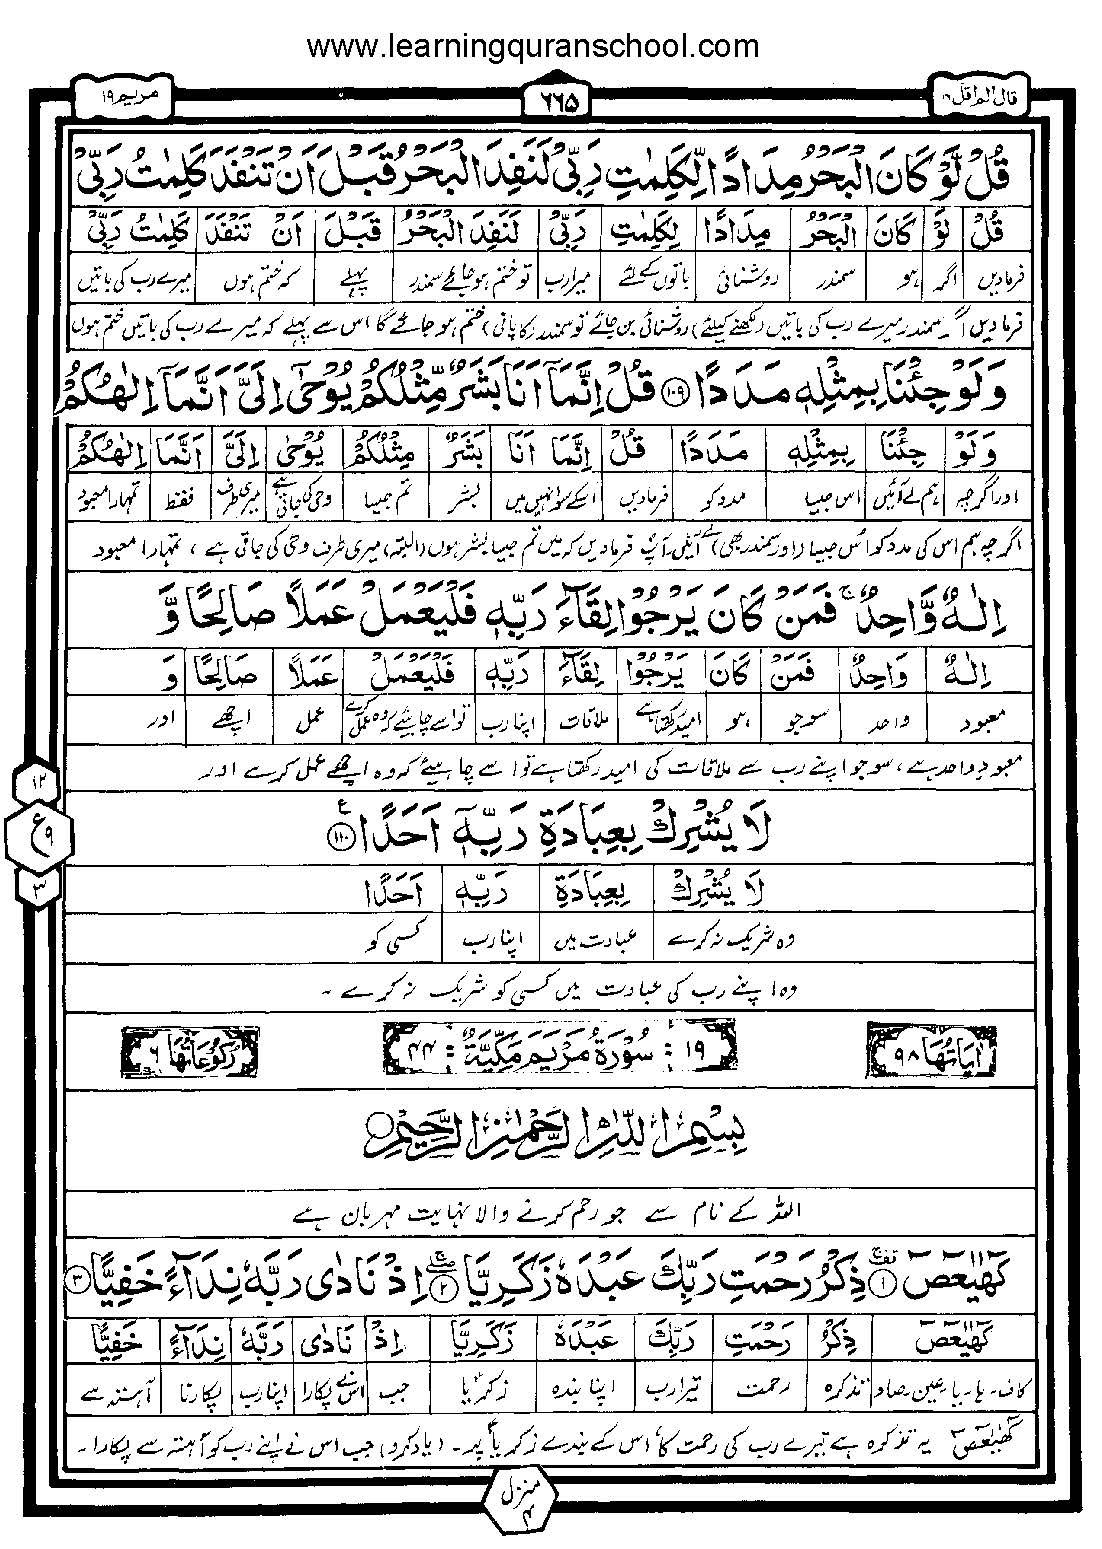 www.learningquranschool.com
قال الم اقل ۱۶
۶۶۵
مریم ۱۹
قُلْ لَّوْ كَانَ الْبَحْرُ مِدَادًا لِّكَلِمٰتِ رَبِّیْ لَنَفِدَ الْبَحْرُ قَبْلَ اَنْ تَنْفَدَ كَلِمٰتُ رَبِّیْ
قُلْ لَّوْ كَانَ الْبَحْرُ مِدَادًا لِكَلِمٰتِ رَبِّیْ لَنَفِدَ الْبَحْرُ قَبْلَ اَنْ تَنْفَدَ كَلِمٰتُ رَبِّیْ
فرمادیں اگر ہو سمندر روشنائی باتوں کےلئے میرا رب تو ختم ہوجائے سمندر پہلے کہ ختم ہوں میرے رب کی باتیں
فرمادیں اگر سمندر میرے رب کی باتیں (لکھنے کیلئے) روشنائی بن جائے تو سمندر (کا پانی) ختم ہو جائے گا اس سے پہلے کہ میرے رب کی باتیں ختم ہوں
وَ لَوْ جِئْنَا بِمِثْلِهٖ مَدَدًا ۱۰۹ قُلْ اِنَّمَاۤ اَنَا بَشَرٌ مِّثْلُكُمْ یُوْحٰۤی اِلَیَّ اَنَّمَاۤ اِلٰهُكُمْ
وَ لَوْ جِئْنَا بِمِثْلِهٖ مَدَدًا قُلْ اِنَّمَا اَنَا بَشَرٌ مِثْلُكُمْ یُوْحٰی اِلَیَّ اَنَّمَا اِلٰهُكُمْ
اور اگرچہ ہم لے آئیں اس جیسا مدد کو فرمادیں اسکے سوا نہیں میں بشر تم جیسا وحی کی جاتی ہے میری طرف فقط تمہارا معبود
اگرچہ ہم اس کی مدد کو اُس جیسا (اور سمندر بھی) لے آئیں آپ فرمادیں کہ میں تم جیسا بشر ہوں (البتہ) میری طرف وحی کی جاتی ہے، تمہارا معبود
اِلٰهٌ وَّاحِدٌ ۚ فَمَنْ كَانَ یَرْجُوْا لِقَآءَ رَبِّهٖ فَلْیَعْمَلْ عَمَلًا صَالِحًا وَّ
اِلٰهٌ وَّاحِدٌ فَمَنْ كَانَ یَرْجُوْا لِقَآءَ رَبِّهٖ فَلْیَعْمَلْ عَمَلًا صَالِحًا وَ
معبود واحد سوجو ہو امید رکھتا ہے ملاقات اپنا رب تو اسے چاہیئے کہ وہ عمل کرے عمل اچھے اور
معبودِ واحد ہے، سو جو اپنے رب سے ملاقات کی امید رکھتا ہے تو اسے چاہیئے کہ وہ اچھے عمل کرے اور
لَا یُشْرِكْ بِعِبَادَةِ رَبِّهٖۤ اَحَدًا ۱۱۰ ع
لَا یُشْرِكْ بِعِبَادَةِ رَبِّهٖ اَحَدًا
وہ شریک نہ کرے عبادت میں اپنا رب کسی کو
وہ اپنے رب کی عبادت میں کسی کو شریک نہ کرے ۔
۱۲
ع ۹
۳
اٰیَاتُهَا ۹۸
۱۹ : سُوْرَةُ مَرْیَمَ مَكِّیَّةٌ : ۴۴
رُكُوْعَاتُهَا ۶
بِسْمِ اللّٰهِ الرَّحْمٰنِ الرَّحِیْمِ
اللہ کے نام سے جو رحم کرنے والا نہایت مہربان ہے
كٓهٰیٰعٓصٓ ۱ ذِكْرُ رَحْمَتِ رَبِّكَ عَبْدَهٗ زَكَرِیَّا ۲ اِذْ نَادٰی رَبَّهٗ نِدَآءً خَفِیًّا ۳
كٓهٰیٰعٓصٓ ذِكْرُ رَحْمَتِ رَبِّكَ عَبْدَهٗ زَكَرِیَّا اِذْ نَادٰی رَبَّهٗ نِدَآءً خَفِیًّا
کاف۔ہا۔یا۔عین۔صاد تذکرہ رحمت تیرا رب اپنا بندہ زکریا جب اس نے پکارا اپنا رب پکارنا آہستہ سے
كٓهٰیٰعٓصٓ یہ تذکرہ ہے تیرے رب کی رحمت کا اس کے بندے زکریا پر ۔ (یاد کرو) جب اس نے اپنے رب کو آہستہ سے پکارا ۔
منزل
۴